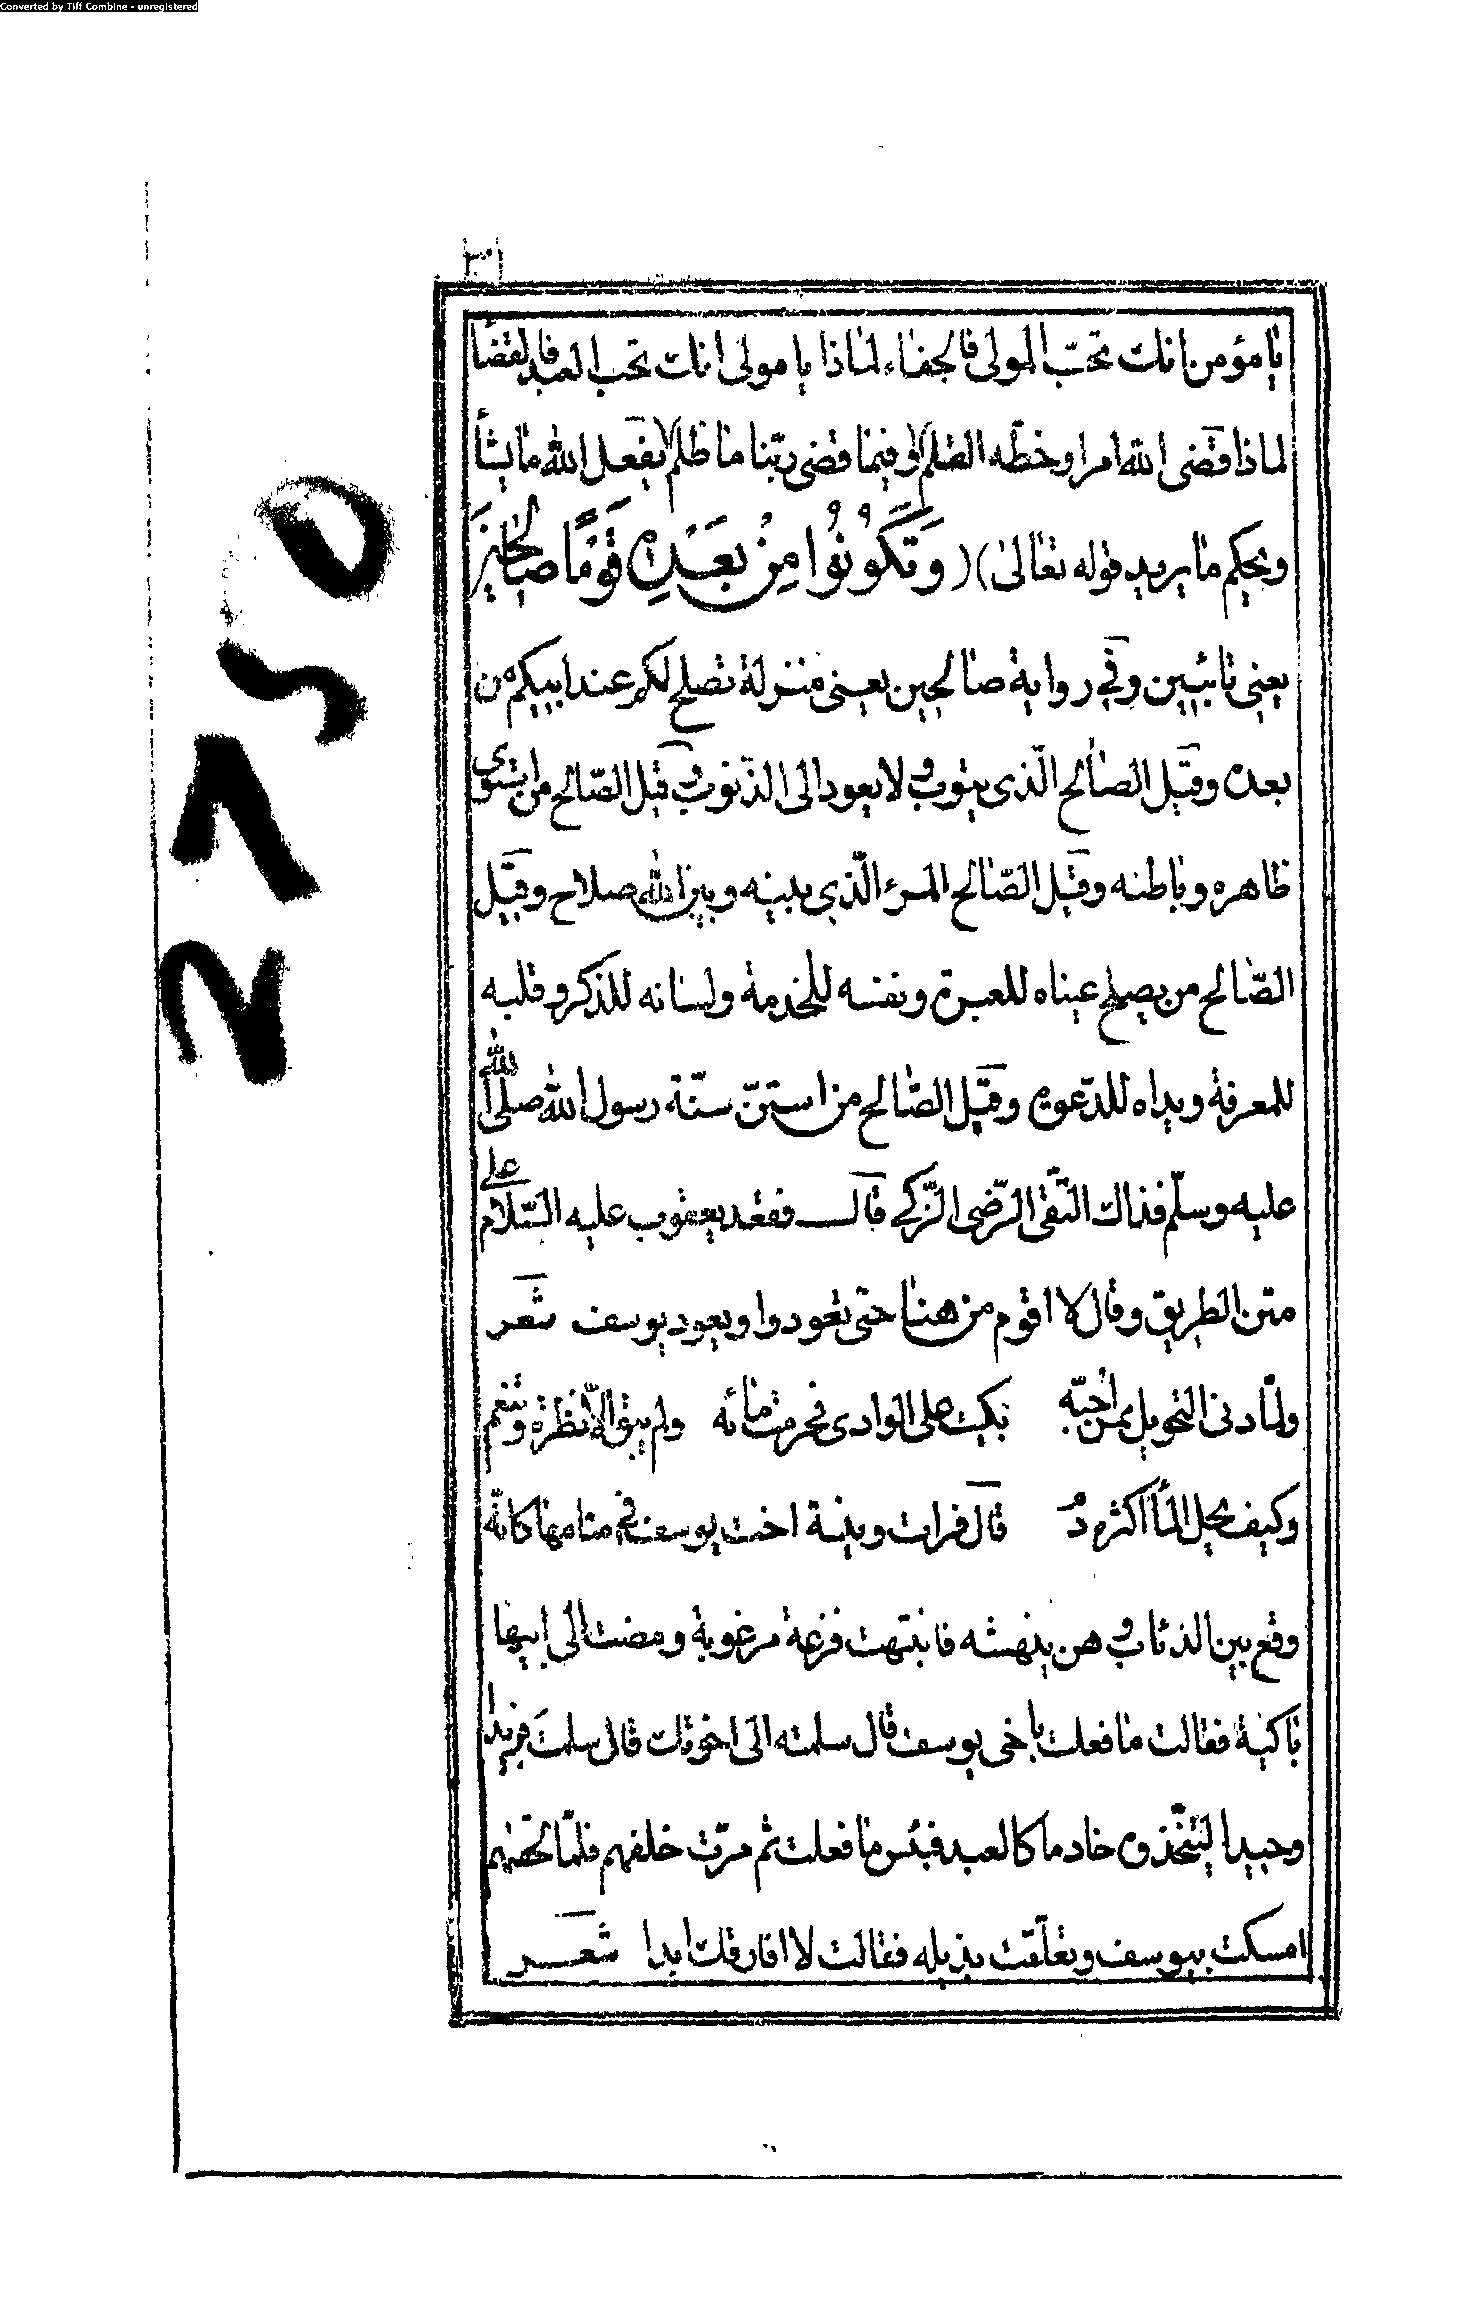 Converted by Tiff Combine - unregistered
٣١
يا مؤمن انك تحبّ المولى فالجفاء لماذا يا مولى انك تحب العبد فالقضأ
لماذا قضى الله امرا وخطّه القلم وفيما قضى ربّنا ما ظلم يفعل الله ما يشأ
ويحكم ما يريد قوله تعالى ( وَتَكُونُوا مِنْ بَعْدِهِ قَوْمًا صَالِحِينَ
يعنى تائبين وفي رواية صالحين يعنى منزلة تصلح لكم عند ابيكم من
بعده وقيل الصالح الّذى يتوب ولا يعود الى الذنوب وقيل الصّالح من استوى
ظاهره وباطنه وقيل الصّالح المرء الّذي بينه وبين الله صلاح وقيل
الصّالح من يصلح عيناه للعبرة ونفسه للخدمة ولسانه للذكر وقلبه
للمعرفة ويداه للدّعوة وقيل الصّالح من استنّ سنّة رسول الله صلى الله
عليه وسلّم فذاك التّقى الرّضى الزّكي قال فقعد يعقوب عليه السّلام على
متن الطريق وقال لا اقوم من هنا حتى تعودوا ويعود يوسف شعر
ولمّا دنى التحويل بمن احبّه بكيت على الوادى فحرمت مائه ولم يبق الّا نظرة وتنغم
وكيف يحل المأ اكثره دم قال فرات وبنية اخت يوسف في منامها كانّه
وقع بين الذئاب وهن ينهشه فانتبهت فزعة مرغوبة ومضت الى ابيها
باكية فقالت ما فعلت باخى يوسف قال سلمته الى اخوتك قال سلمت فريدا
وحيدا ليتّخذوه خادما كالعبد فبئس ما فعلت ثم مرّت خلفهم فلمّا لحقتهم
امسكت بيوسف وتعلّقت بذيله فقالت لا افارقك ابدا شعر